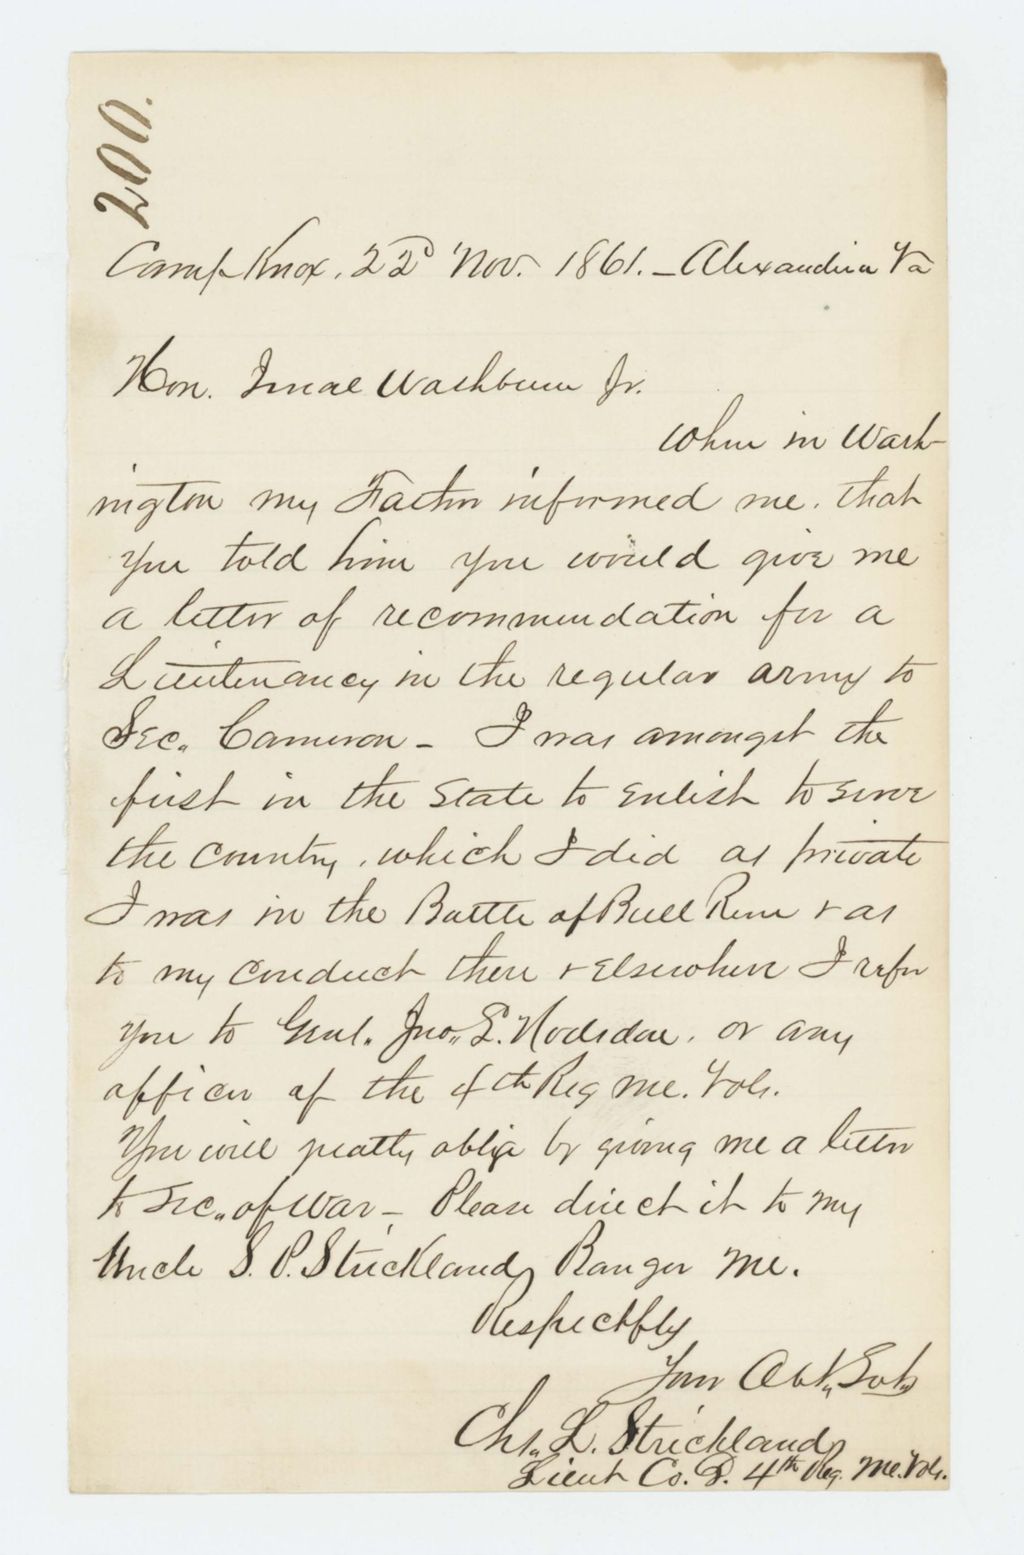 200.
Camp Knox, 22d Nov. 1861. - Alexandria Va
Hon. Israel Washburn Jr.
When in Wash-
ington my Father informed me, that
you told him you would give me
a letter of recommendation for a
Lieutenancy in the regular army to
Sec. Cameron - I was amongst the
first in the State to enlist to serve
the country, which I did as private
I was in the Battle of Bull Run & as
to my conduct there & elsewhere I refer
you to Genl. Jno. L. Hodsdon, or any
officer of the 4th Reg Me. Vols.
You will greatly oblige by giving me a letter
to Sec. of War - Please direct it to my
Uncle S. P. Strickland, Bangor Me.
Respectfly
Your Obt. Svt.
Chs. L. Strickland
Lieut Co. D. 4th Reg. Me. Vols.